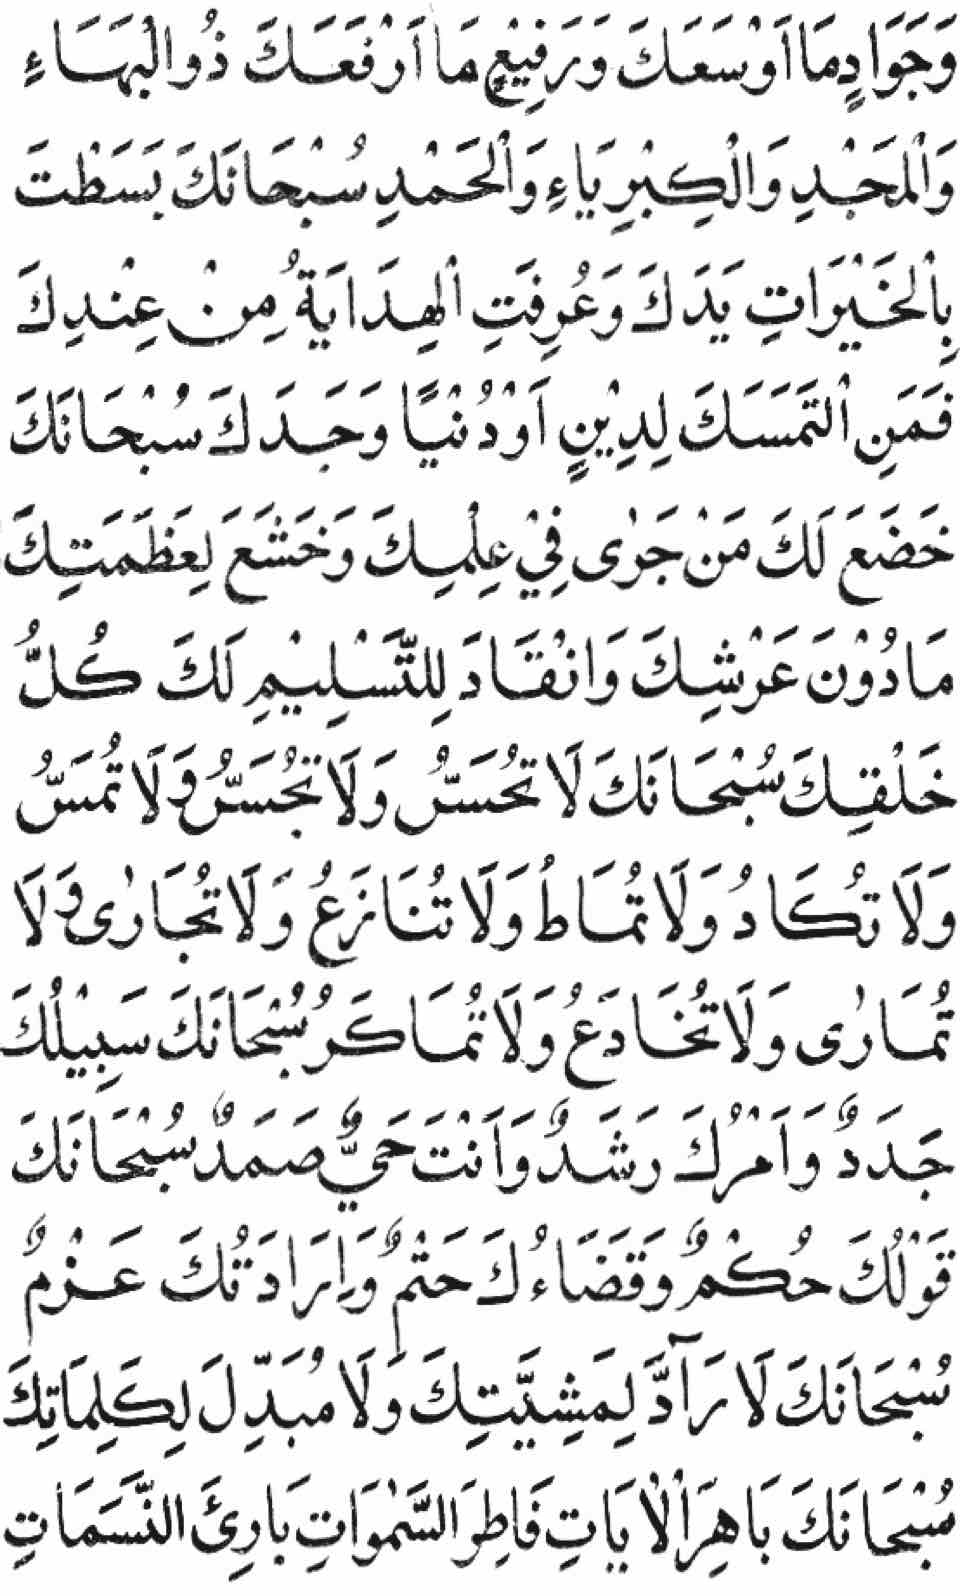 وَجَوَادٍ مَا اَوْسَعَكَ وَرَفِيْعٍ مَا اَرْفَعَكَ ذُو الْبَهَاءِ
وَالْمَجْدِ وَالْكِبْرِيَاءِ وَالْحَمْدِ سُبْحَانَكَ بَسَطْتَ
بِالْخَيْرَاتِ يَدَكَ وَعُرِفَتِ الْهِدَايَةُ مِنْ عِنْدِكَ
فَمَنِ الْتَمَسَكَ لِدِيْنٍ اَوْ دُنْيًا وَجَدَكَ سُبْحَانَكَ
خَضَعَ لَكَ مَنْ جَرٰى فِيْ عِلْمِكَ وَخَشَعَ لِعَظَمَتِكَ
مَا دُوْنَ عَرْشِكَ وَانْقَادَ لِلتَّسْلِيْمِ لَكَ كُلُّ
خَلْقِكَ سُبْحَانَكَ لَا تُحَسُّ وَلَا تُجَسُّ وَلَا تُمَسُّ
وَلَا تُكَادُ وَلَا تُمَاطُ وَلَا تُنَازَعُ وَلَا تُجَارٰى وَلَا
تُمَارٰى وَلَا تُخَادَعُ وَلَا تُمَاكَرُ سُبْحَانَكَ سَبِيْلُكَ
جَدَدٌ وَاَمْرُكَ رَشَدٌ وَاَنْتَ حَيٌّ صَمَدٌ سُبْحَانَكَ
قَوْلُكَ حُكْمٌ وَقَضَاءُكَ حَتْمٌ وَاِرَادَتُكَ عَزْمٌ
سُبْحَانَكَ لَا رَآدَّ لِمَشِيَّتِكَ وَلَا مُبَدِّلَ لِكَلِمَاتِكَ
سُبْحَانَكَ بَاهِرَ الْاٰيَاتِ فَاطِرَ السَّمٰوَاتِ بَارِئَ النَّسَمَاتِ